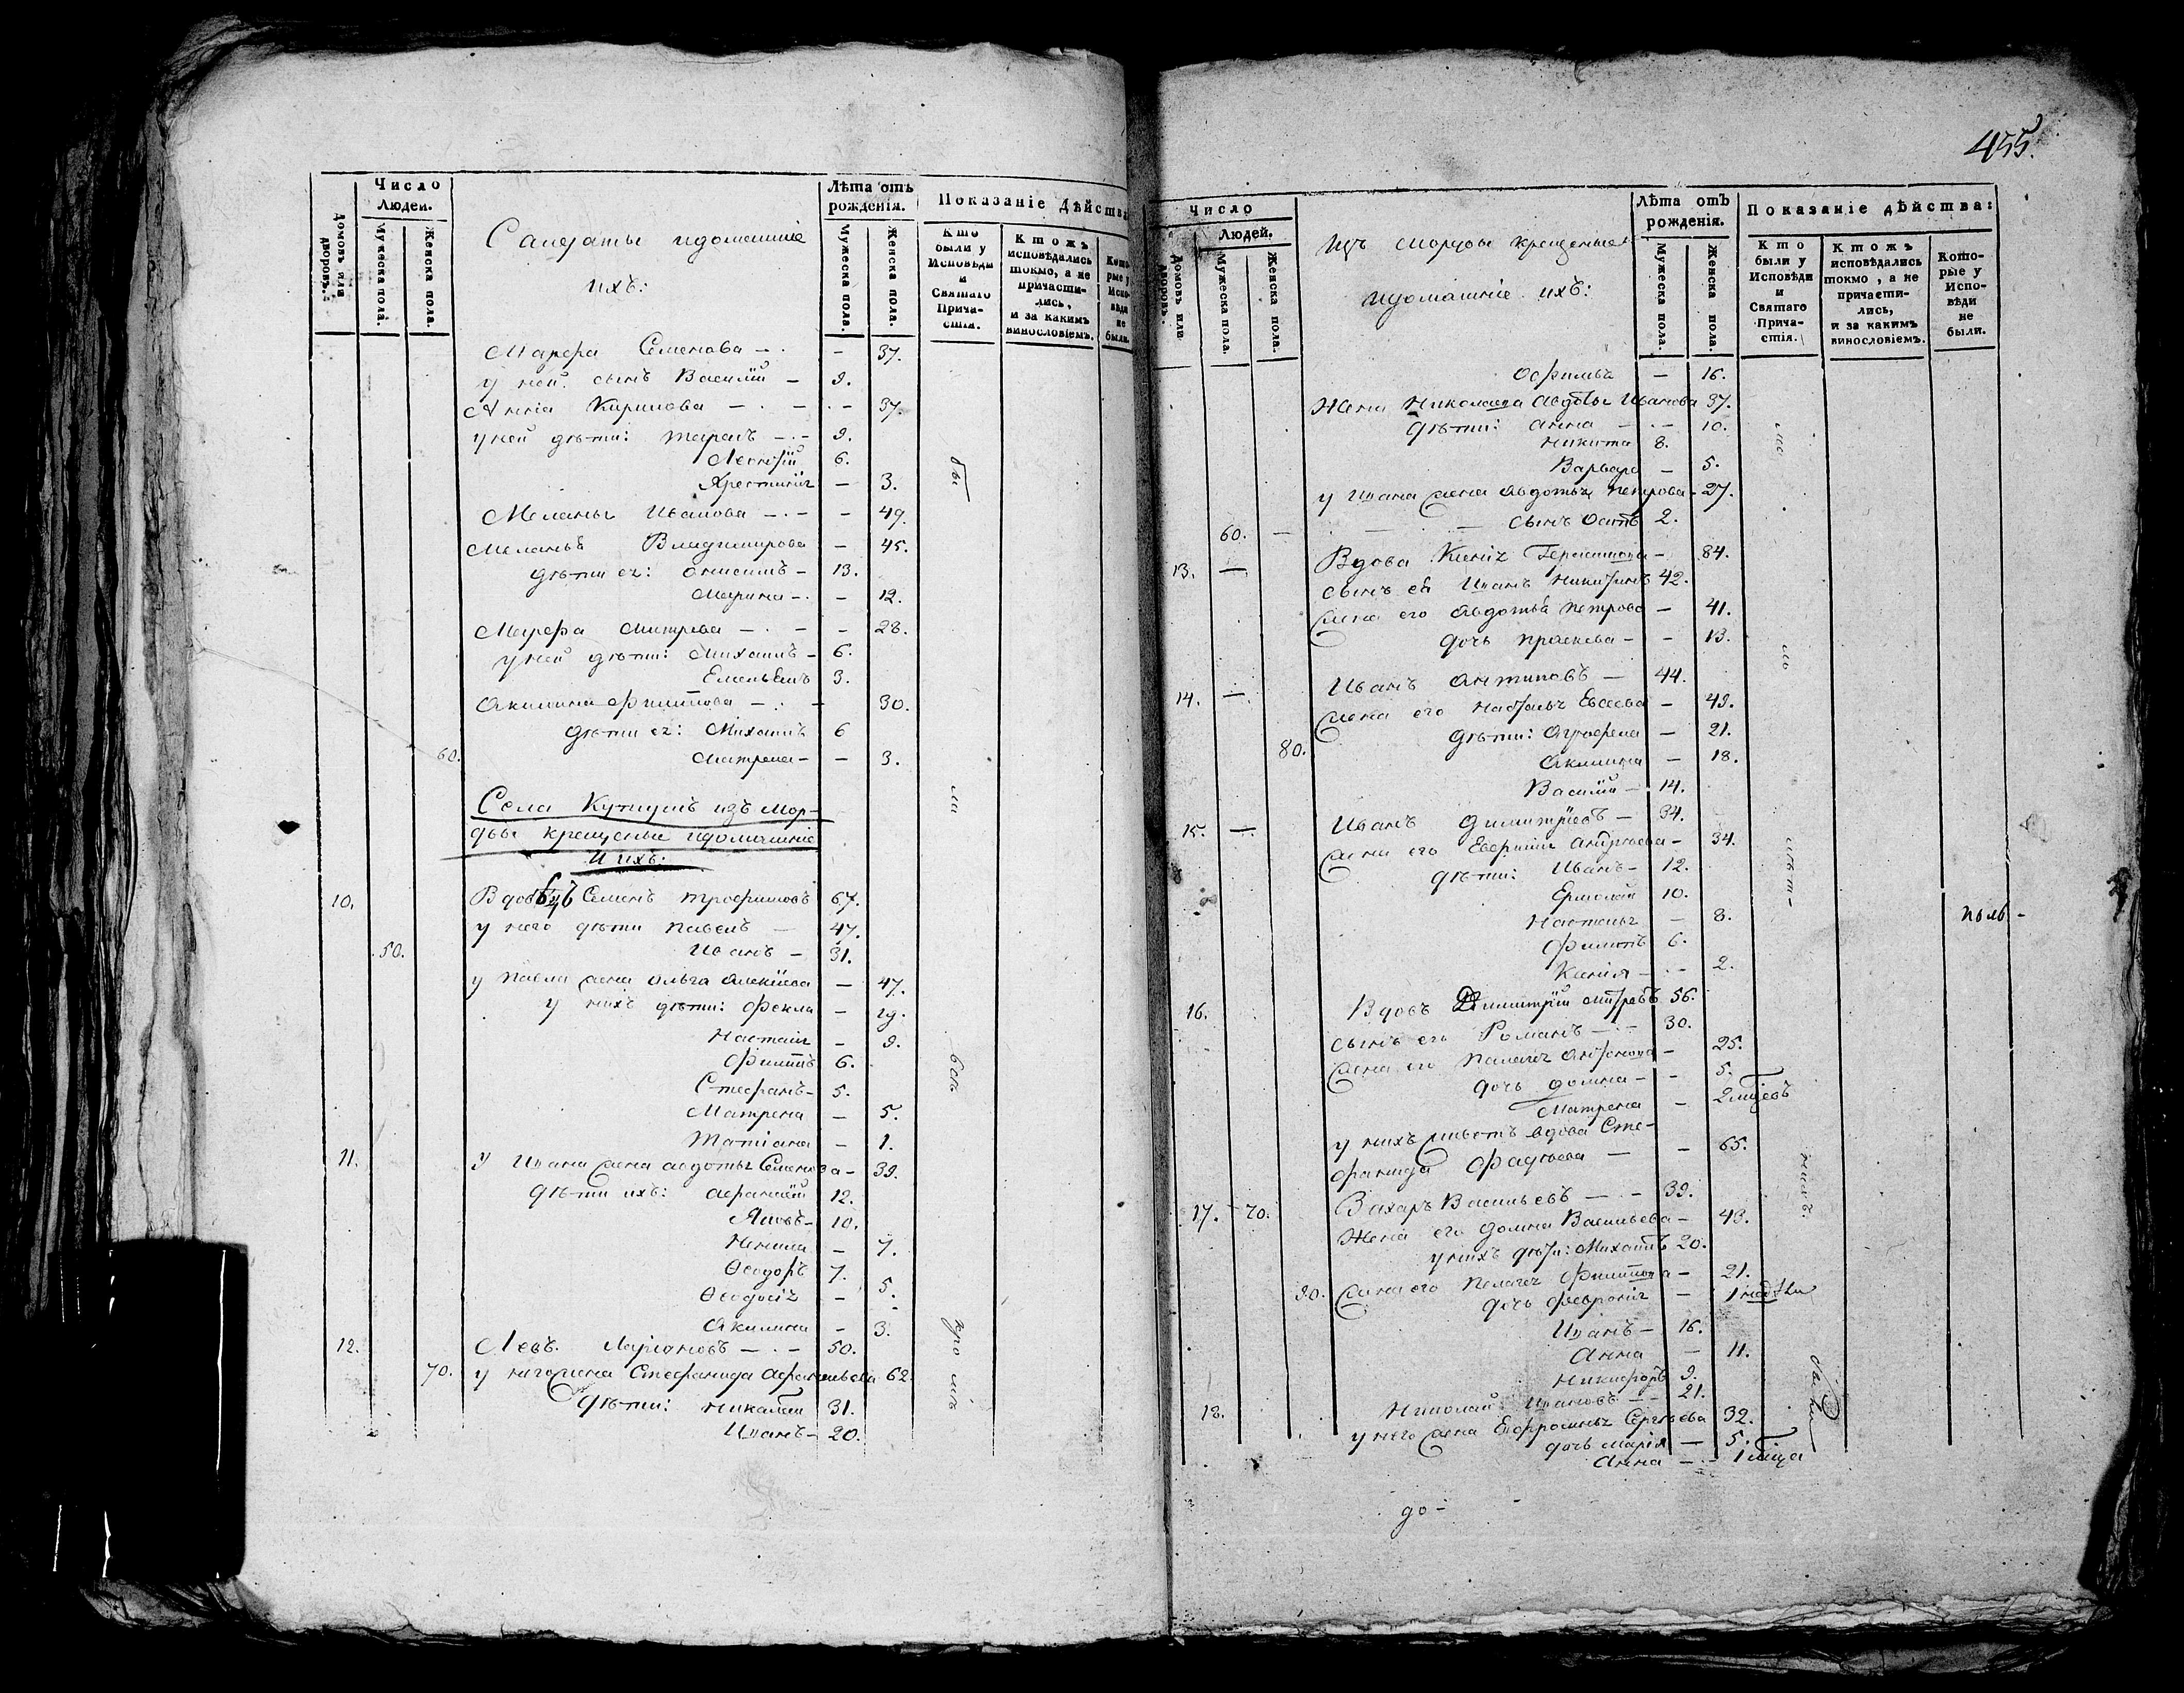 Число
Людей.
Домовъ или дворовъ.
Мужеска пола.
Женска пола.
Салдаты идомашніе
ихъ:
Лѣта отъ
рожденія.
Мужеска пола.
Женска пола.
Показаніе дѣйства
Кто были у Исповѣди и Святаго Прича-стія.
Ктожъ исповѣдались токмо, а не причасти-лись, и за какимъ винословіемъ.
Кото-рые у Испо-вѣди не были.
Марфа Семенова - . - 37.
у ней сынъ Василій - 9.
Анна Кирилова - . - . - 37.
у ней дѣти: Тарасъ - . - 9.
6.
Хрестинія - 3.
Меланья Иванова - . - - 49.
Меланья Владимирова - 45.
дѣти ея: Онисимъ - 13.
Марина - . - 12.
Марфа Митрева - . - - 28.
у ней дѣти: Михаилъ - 6.
Емельянъ 3.
Акилина Филипова - . - 30.
дѣти ея: Михаилъ 6
60. Матрена - - 3.
Села изъ Мор-
двы крещеные идомашніе
ихъ:
10. Вдовецъ Семенъ Трофимовъ 67.
у него дѣти Павелъ - 47.
50. Иванъ - 31.
у Павла жена Ольга Алекѣева - 47.
у нихъ дѣти: Фекла - 19.
Настасія - 9.
Филипъ 6.
Стефанъ - 5.
Матрена - 5.
Татіана - 1.
11. у Ивана жена Авдотья Семенова - 39.
дѣти ихъ: Афанасій 12.
Яковъ - 10.
Ненила - 7.
Ѳеодоръ 7.
Ѳеодосія - 5.
Акилина - 3.
12. Левъ Ларіоновъ - . - 50.
70. у него жена Стефанида Афанасьева 62.
дѣти: Николай 31.
Иванъ - 20.
бы
ли
всѣ
кро
мѣ
455.
Число
Людей.
Домовъ или дворовъ.
Мужеска пола.
Женска пола.
Изъ Мордвы крещеные
идомашніе ихъ:
Лѣта отъ
рожденія.
Мужеска пола.
Женска пола.
Показаніе дѣйства:
Кто были у Исповѣди и Святаго Прича-стія.
Ктожъ исповѣдались токмо, а не причасти-лись, и за какимъ винословіемъ.
Кото-рые у Испо-вѣди не были.
- 16.
Жена Николаева Авдотья Иванова 37.
дѣти: Анна - . - 10.
Никита 8.
Варвара - 5.
у Ивана жена Авдотья Петрова - 27.
60. - - - сынъ Осипъ 2.
13. - Вдова Ксенія - 84.
сынъ ея Иванъ Никитинъ 42.
жена его Авдотья Петрова - 41.
дочь Прасковья - - 13.
14. - Иванъ Антиповъ - 44.
жена его Наталья Евсеева - 43.
80. дѣти: Агрофена - 21.
Акилина - 18.
Василій - 14.
15. - Иванъ Димитріевъ - 34.
жена его Евфимія Андреева - 34.
дѣти: Иванъ - 12.
Ермолай 10.
Настасья - 8.
Филипъ 6.
Ксенія - . - 2.
16. Вдовъ Димитрій 56.
сынъ его Романъ - . - 30.
жена его Пелагея Антонова - 25.
дочь Домна - - 5.
Матрена - 2 мѣсецъ
у нихъ живетъ вдова Сте-
фанида Фадѣева - - 65.
17. - 70. Захаръ Васильевъ - . - 39.
Жена его Домна Васильева - 43.
у нихъ дѣти: Михаилъ 20.
90. жена его Пелагея Филипова - 21.
дочь Февронія - 1 недѣли
Иванъ - 16.
Анна - 11.
Никифоръ 9.
18. Николай Ивановъ - - 21.
у него жена Ефросинья Сергѣева 32.
дочь Марія - 5.
Анна - - 1 мѣсца
мла
де
нцовъ
до -